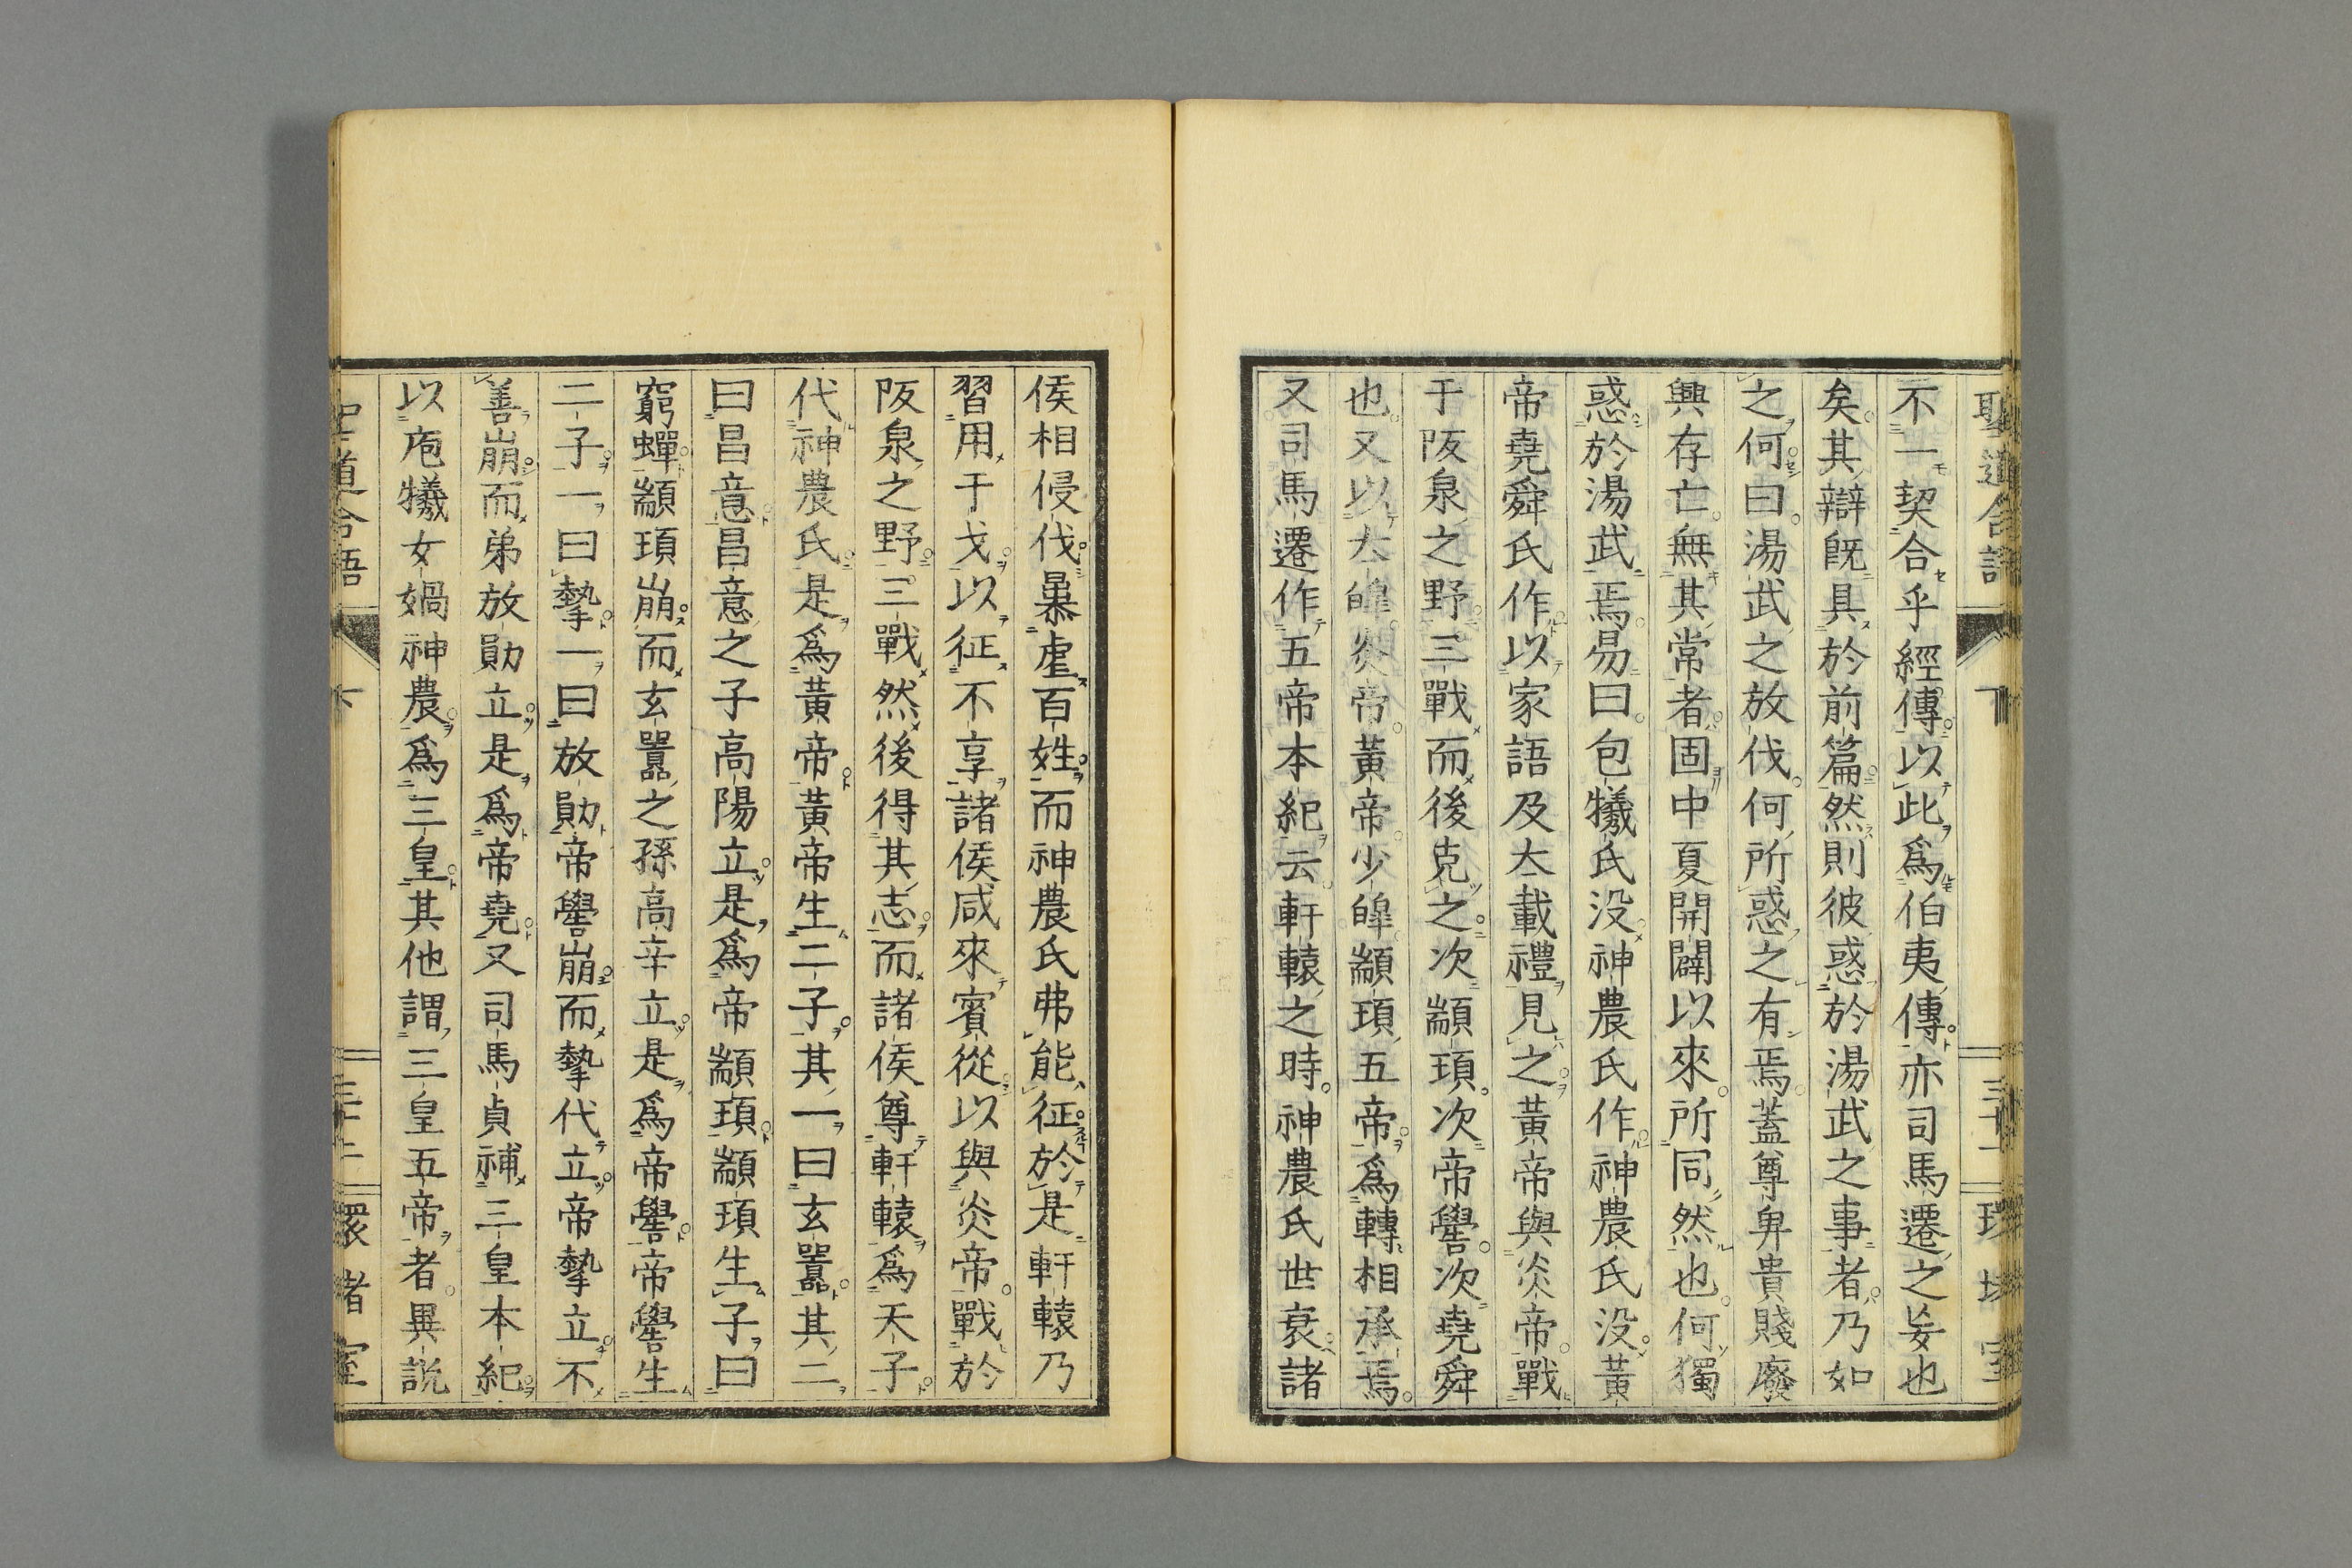 聖道合語 下 三十一 環堵室
不一契合乎經傳以此爲伯夷傳亦司馬遷之妄也
矣其辯既具於前篇然則彼惑於湯武之事者乃如
之何曰湯武之放伐何所惑之有焉蓋尊卑貴賤廢
興存亡無其常者固中夏開闢以來所同然也何獨
惑於湯武焉易曰包犧氏没神農氏作神農氏没黃
帝堯舜氏作以家語及太戴禮見之黃帝與炎帝戰
于阪泉之野三戰而後克之次顓頊次帝嚳次堯舜
也又以太皥炎帝黃帝少皥顓頊五帝爲轉相承焉
又司馬遷作五帝本紀云軒轅之時神農氏世衰諸
侯相侵伐暴虐百姓而神農氏弗能征於是軒轅乃
習用干戈以征不享諸侯咸來賓從以與炎帝戰於
阪泉之野三戰然後得其志而諸侯尊軒轅爲天子
代神農氏是爲黃帝黃帝生二子其一曰玄囂其二
曰昌意昌意之子高陽立是爲帝顓頊顓頊生子曰
窮蟬顓頊崩而玄囂之孫高辛立是爲帝嚳帝嚳生
二子一曰摯一曰放勛帝嚳崩而摯代立帝摯立不
善崩而弟放勛立是爲帝堯又司馬貞補三皇本紀
以庖犧女媧神農爲三皇其他謂三皇五帝者異説
聖道合語 下 三十二 環堵室